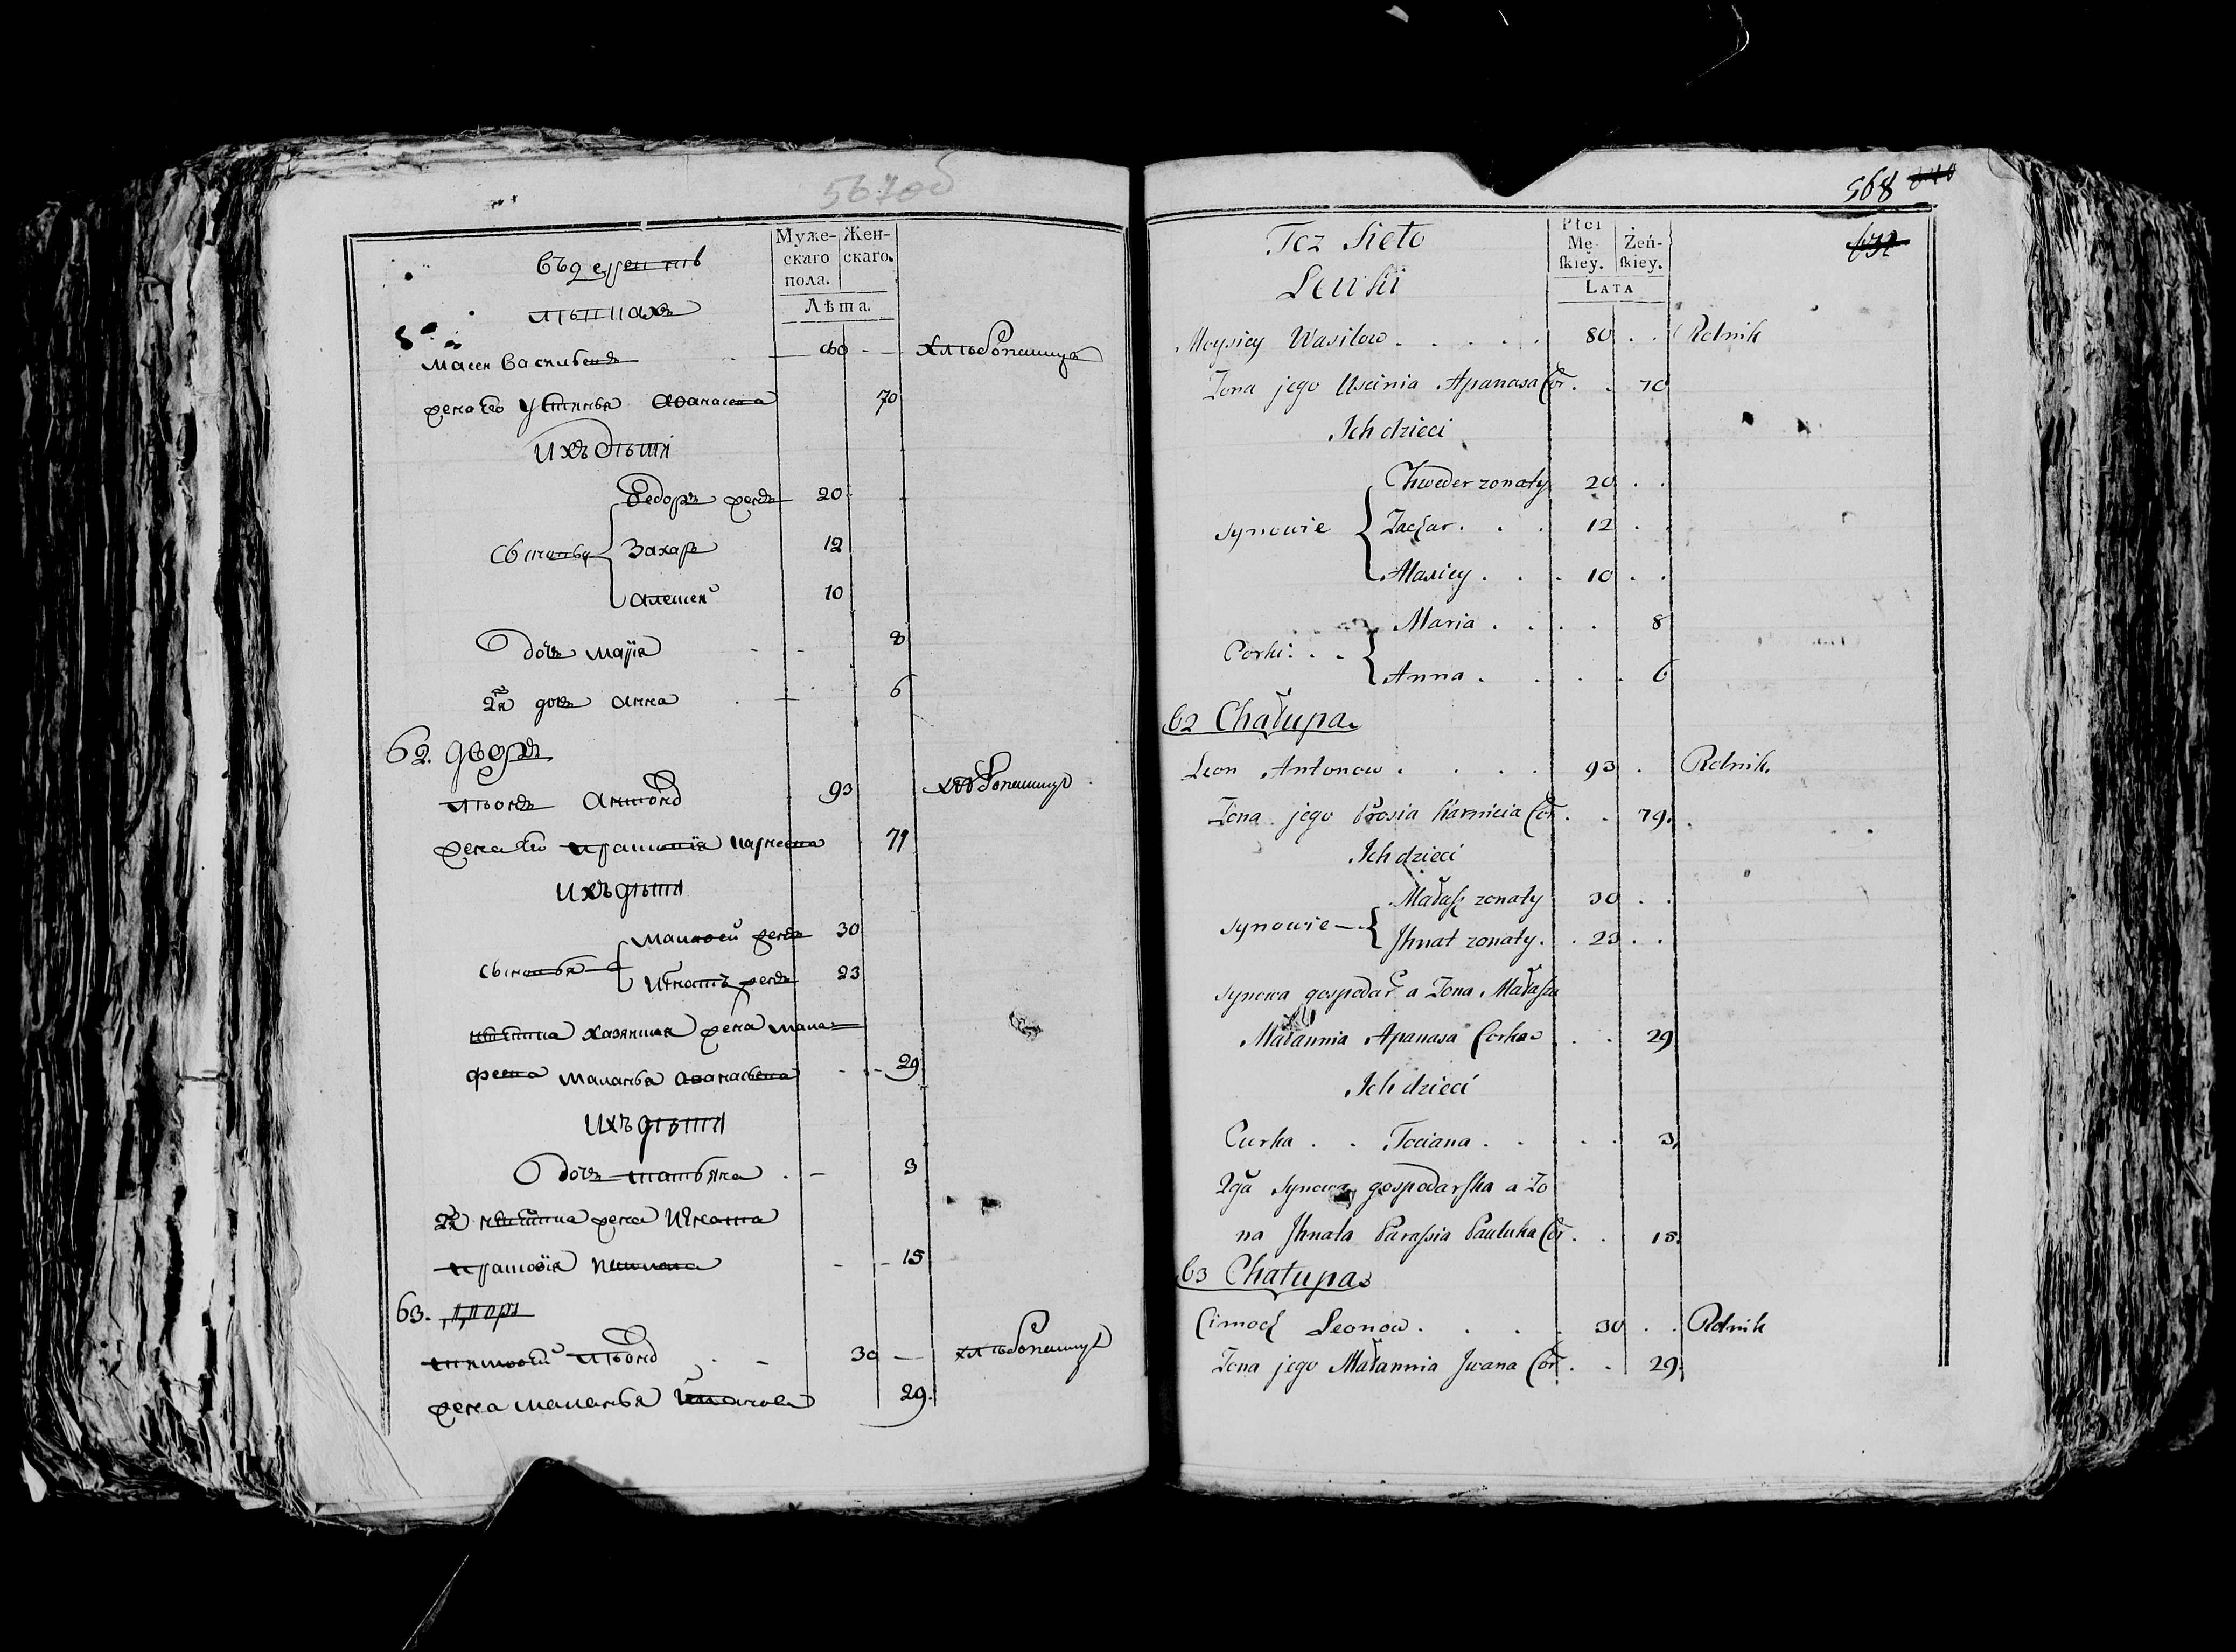 567об
Муже-
скаго
пола.
Жен-
скаго.
Лѣта.
въ деревнѣ
80
хлѣбопашецъ
жена его Устинья
70
ихъ дѣти
Федоръ женатъ 20
сыновья
Захаръ 12
Алексей 10
дочь Марія 8
2я дочь Анна 6
62. дворъ
Антоновъ 93 хлѣбопашецъ
жена его 79
ихъ дѣти
30
сыновья
Игнатъ женатъ 23
хазяина жена Мала=
феева Маланья Афанасьева 29
ихъ дѣти
дочь Татьяна 3
2я жена Игната
15
63. дворъ
30 хлѣбопашецъ
жена Маланья 29.
568
632
Toż Sieło
Leuski
Płci
Mę-
skiey.
Żeń-
skiey.
LATA
Moysiey Wasilow 80 Rolnik
Zona jego Uscinia Apanasa Cor. 70
Ich dzieci
Chweder zonaty 20
Synowie
Zachar 12
10
Maria 8
Corki
Anna 6
62 Chałupa
Leon Antonow 93 Rolnik.
Zona jego Cor. 79.
Ich dzieci
Małasz zonaty 30
Synowie
Jhnat zonaty 23
Synowa gospodar a Zona Małasza
Małannia Apanasa Corka 29
Ich dzieci
Curka Taciana 3
2ga Synowa gospodarska a Zo
na Jhnata Parasia Pauluka Cor. 15.
63 Chałupa
Cimoch Leonow 30 Rolnik
Zona jego Małannia Jwana Cor. 29.